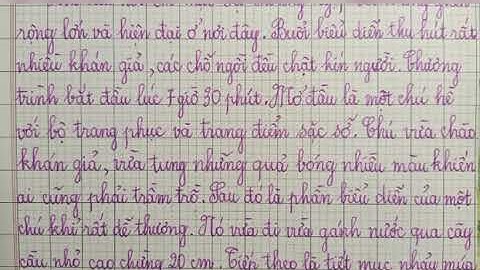 rộng lớn và hiện đại ở nơi đây. Buổi biểu diễn thu hút rất
nhiều khán giả, các chỗ ngồi đều chật kín người. Chương
trình bắt đầu lúc 7 giờ 30 phút. Mở đầu là một chú hề
với bộ trang phục và trang điểm sặc sỡ. Chú vừa chào
khán giả, vừa tung những quả bóng nhiều màu khiến
ai cũng phải trầm trồ. Sau đó là phần biểu diễn của một
chú khỉ rất dễ thương. Nó vừa đi vừa gánh nước qua cây
cầu nhỏ cao chừng 20 cm. Tiếp theo là tiết mục nhảy múa